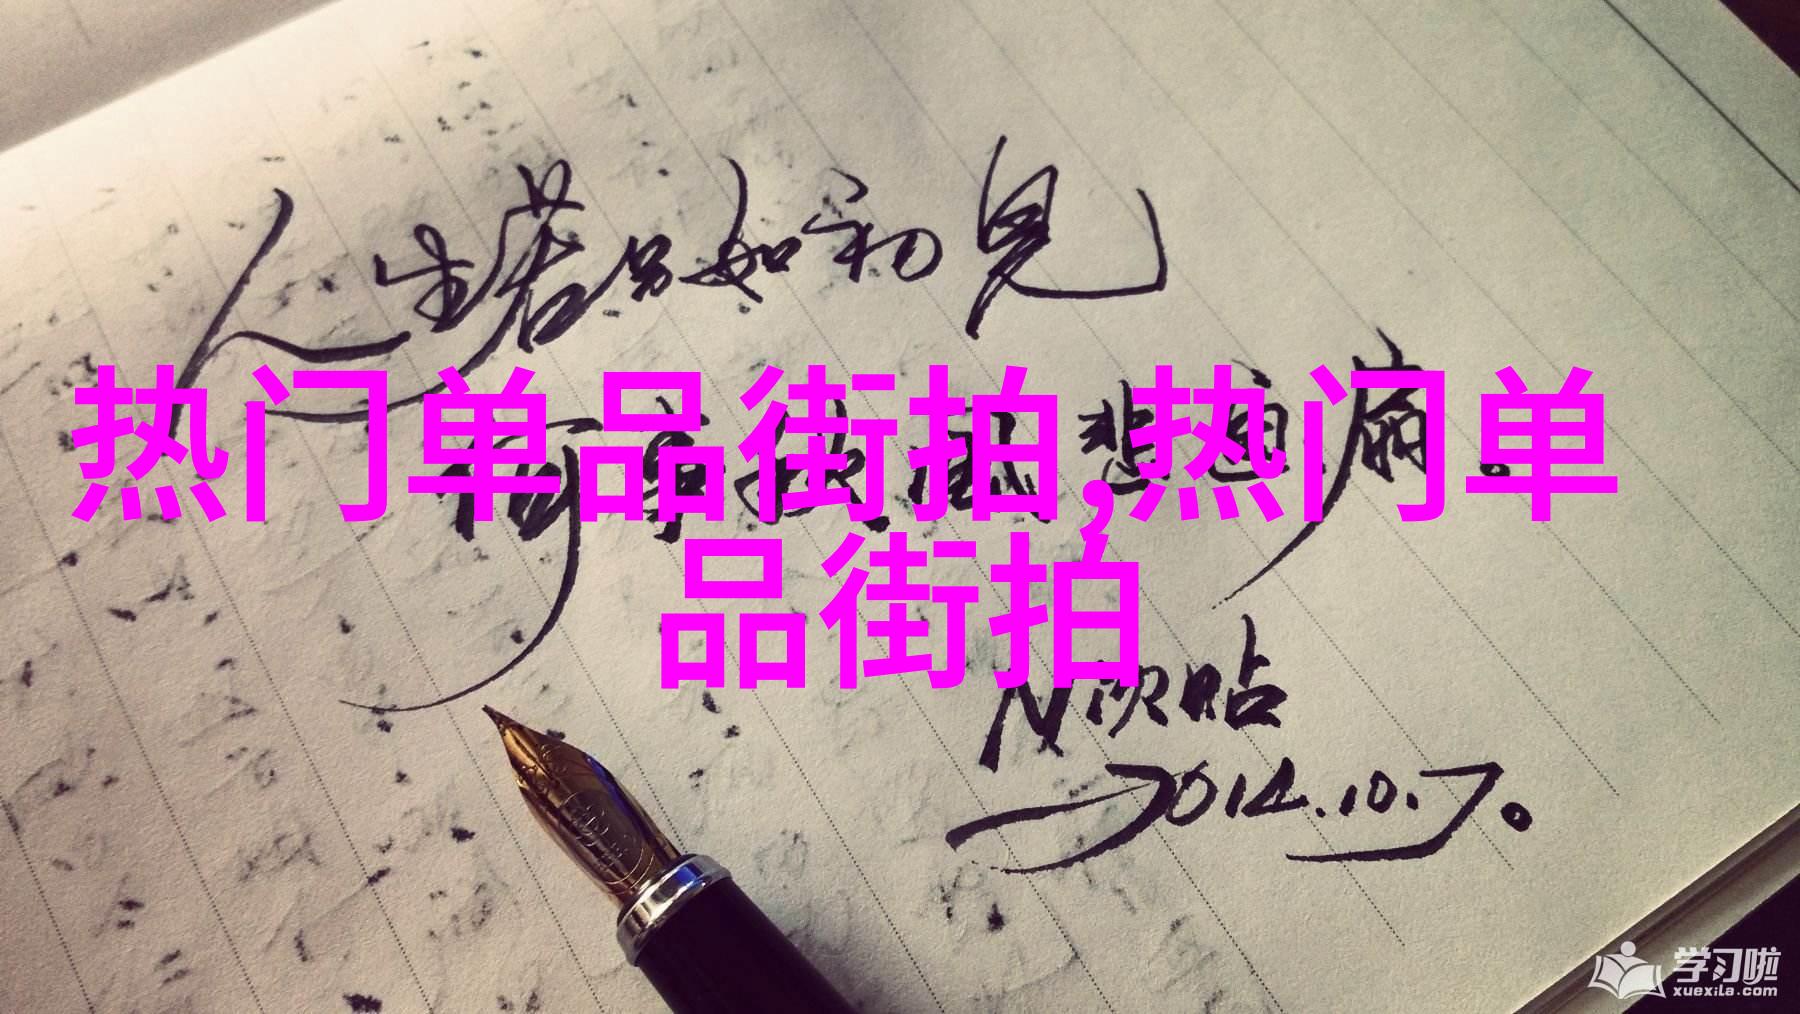 人生若只如初见
何事秋风悲画扇。
热门单品街拍,热门单
品街拍
N次贴
2014.10.7。
学习啦
xuexila.com